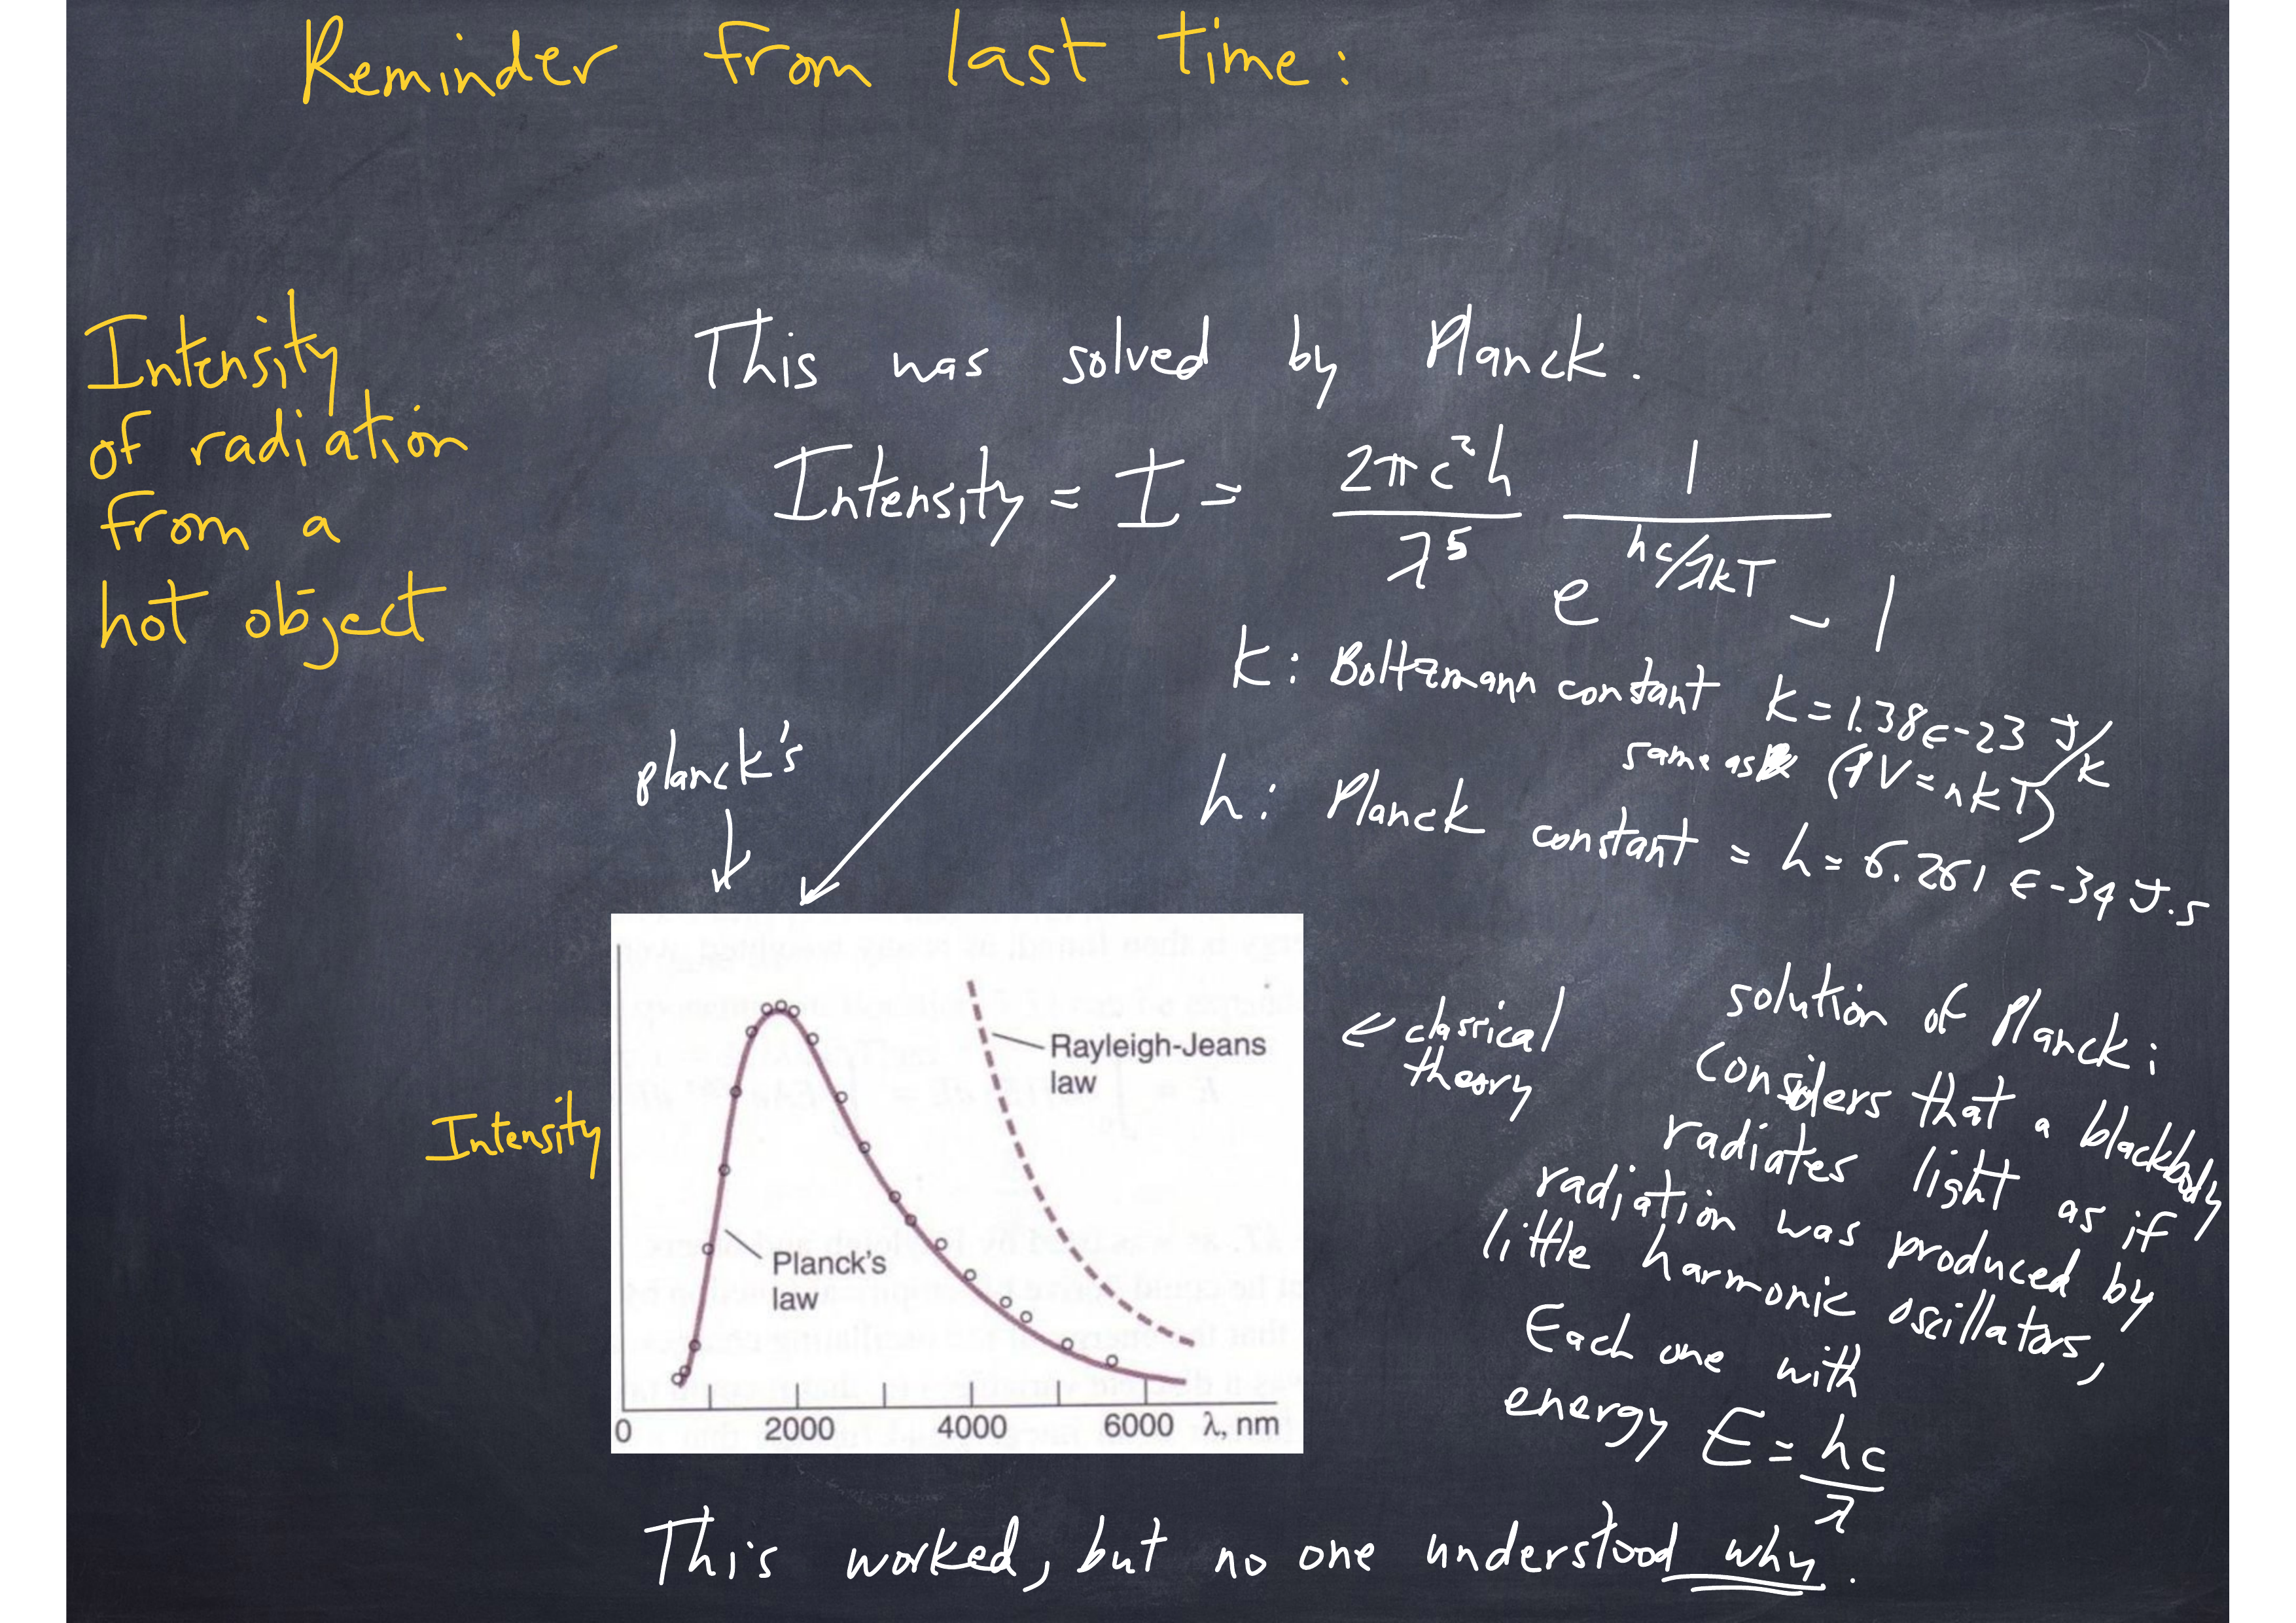 Reminder from last time:
Intensity
of radiation
from a
hot object
This was solved by Planck.
Intensity = I = 2πc²h/λ⁵ 1/(e^(hc/λkT) - 1)
k: Boltzmann constant k = 1.38E-23 J/K
same as (PV = nkT)
h: Planck constant = h = 6.261 E-34 J.s
planck's
Intensity
Rayleigh-Jeans
law
Planck's
law
0 2000 4000 6000 λ, nm
← classical
theory
solution of Planck:
Considers that a blackbody
radiates light as if
radiation was produced by
little harmonic oscillators,
Each one with
energy E = hc/λ
This worked, but no one understood why.